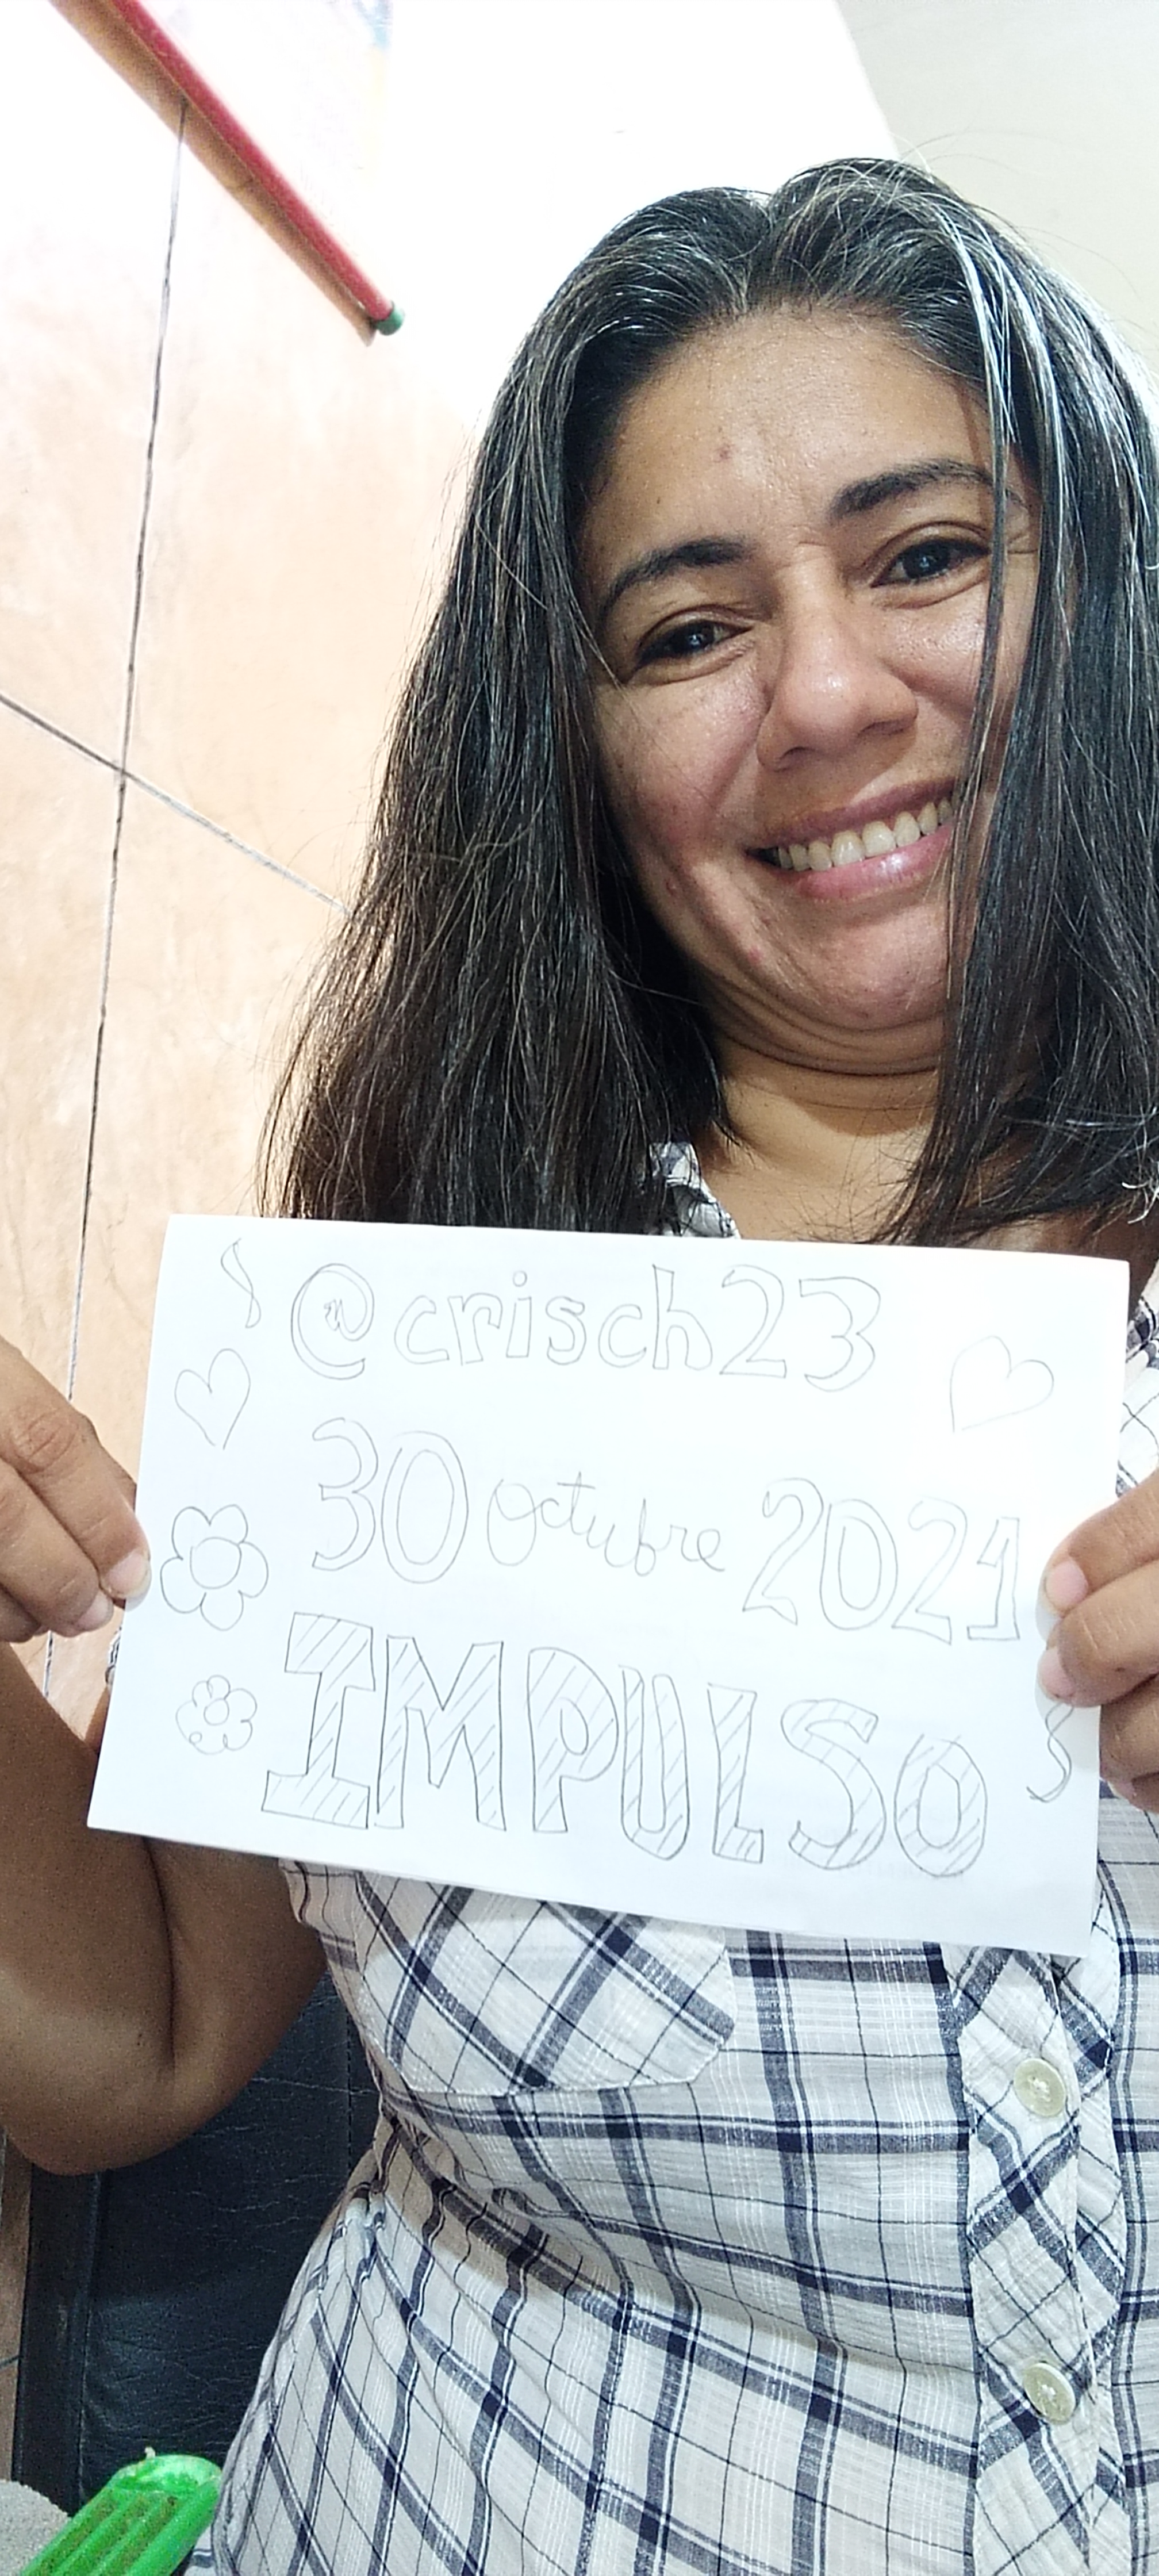 @crisch23
30 octubre 2021
IMPULSO